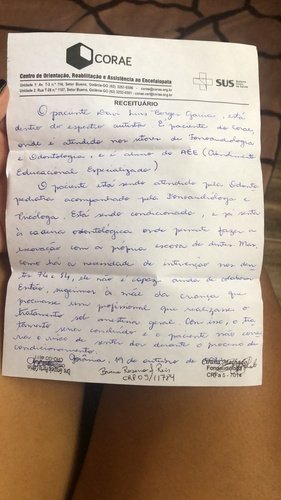 CORAE
Centro de Orientação, Reabilitação e Assistência ao Encefalopata
Unidade 1: Av. T-3 n.º
Setor Bueno, Goiânia-GO
Unidade 2: Rua T-28 n.º
Setor Bueno, Goiânia-GO
SUS
RECEITUÁRIO
O paciente Davi Luis Borges Garcia, está
dentro do espectro autista. É paciente do Corae,
onde é atendido nos setores de Fonoaudiologia
e Odontologia, e é aluno do AEE (Atendimento
Educacional Especializado)
O paciente está sendo atendido pela Odonto
pediatra acompanhado pela Fonoaudióloga e
Psicóloga. Está sendo condicionado, e já senta
à cadeira odontológica onde permite fazer a
escovação com a própria escova de dentes. Mas,
como há a necessidade de intervenção nos den
tes 74 e 84, ele não é capaz ainda de colaborar
Então, sugerimos à mãe da criança que
procurasse um profissional que realizasse o
tratamento sob anestesia geral. Com isso, o tra
tamento será concluído e o paciente não corre
ria o risco de sentir dor durante o processo de
condicionamento.
Goiânia, 19 de outubro de
Fonoaudióloga
Bruna Rosena Reis
CRP 09/11784